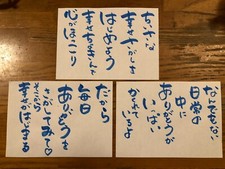 ちいさな
幸せさがしを
はじめよう
幸せちょきんで
心がほっこり
なんでもない
日常の
中に
ありがとうが
いっぱい
かくれているよ
だから
毎日
ありがとうを
さがしてみて♡
そこから
幸せがはじまる